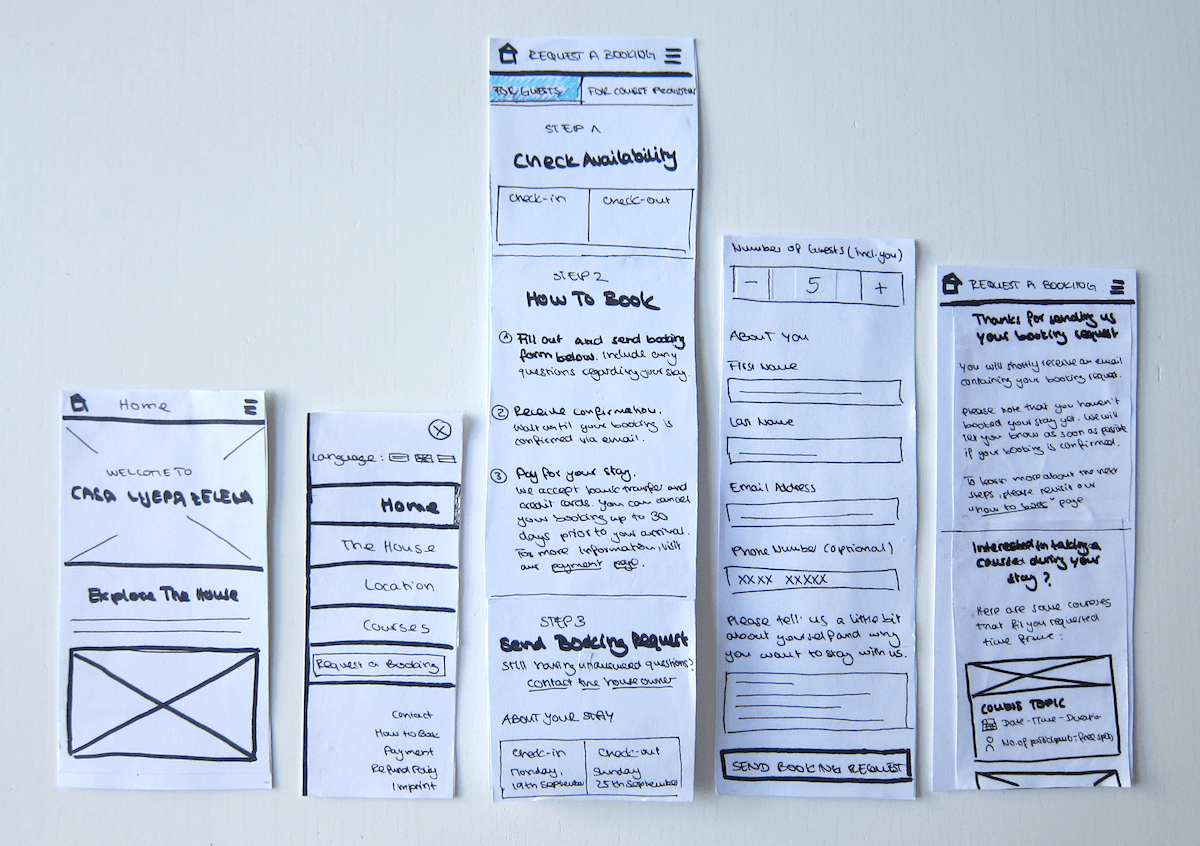 Home
WELCOME TO
CASA LIJEPA ZELENA
Explore The House
Language:
Home
The House
Location
Courses
Request a Booking
Contact
How to Book
Payment
Refund Policy
Imprint
REQUEST A BOOKING
FOR GUESTS
FOR COURSE PROVIDERS
STEP 1
Check Availability
Check-in
Check-out
STEP 2
How To Book
1 Fill out and send booking
form below. Include any
questions regarding your stay.
2 Receive confirmation.
Wait until your booking is
confirmed via email.
3 Pay for your stay.
We accept bank transfer and
credit cards. You can cancel
your booking up to 30
days prior to your arrival.
For more information, visit
our payment page.
STEP 3
Send Booking Request
Still having unanswered questions?
Contact the house owner
ABOUT YOUR STAY
Check-in
Monday,
19th September
Check-out
Sunday
25th September
Number of Guests (incl. you)
- 5 +
ABOUT YOU
First Name
Last Name
Email Address
Phone Number (optional)
XXXX XXXXX
Please tell us a little bit
about yourself and why
you want to stay with us.
SEND BOOKING REQUEST
REQUEST A BOOKING
Thanks for sending us
your booking request
You will shortly receive an email
containing your booking request.
Please note that you haven't
booked your stay yet. We will
let you know as soon as possible
if your booking is confirmed.
To learn more about the next
steps, please revisit our
"how to book" page.
Interested in taking a
course during your
stay?
Here are some courses
that fit your requested
time frame:
COURSE TOPIC
Date - Time - Duration
No. of participants - free spots